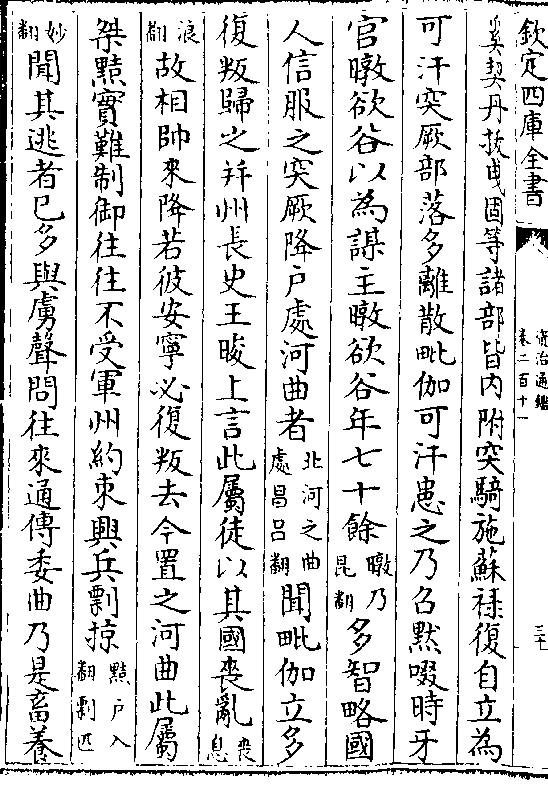 欽定四庫全書
資治通鑑
卷二百十一
三十
奚契丹拔曳固等諸部皆內附突騎施蘇祿復自立為
可汗突厥部落多離散毗伽可汗患之乃召默啜時牙
官暾欲谷以為謀主暾欲谷年七十餘暾乃昆翻多智略國
人信服之突厥降户處河曲者北河之曲處昌吕翻聞毗伽立多
復叛歸之并州長史王晙上言此屬徒以其國喪亂喪息
浪翻故相帥來降若彼安寧必復叛去今置之河曲此屬
桀黠實難制御往往不受軍州約束興兵剽掠黠户入翻剽匹
妙翻聞其逃者已多與虜聲問往來通傳委曲乃是畜養